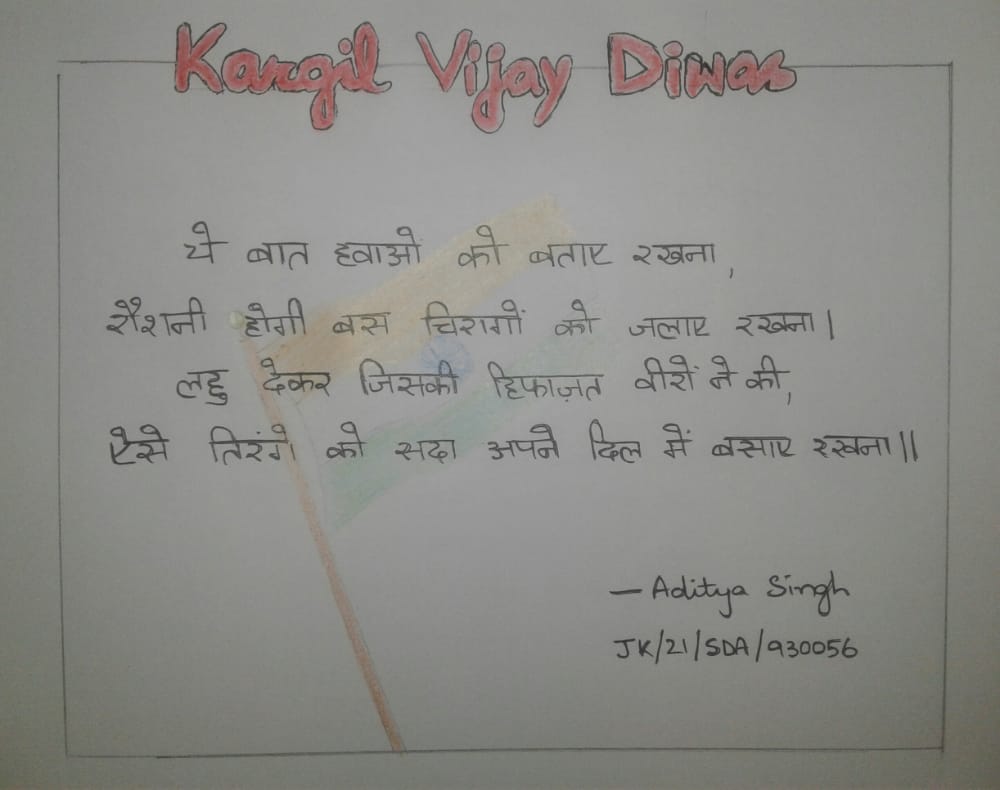 Kargil Vijay Diwas
ये बात हवाओ को बताए रखना,
रौशनी होगी बस चिरागों को जलाए रखना।
लहु देकर जिसकी हिफाज़त वीरों ने की,
ऐसे तिरंगे को सदा अपने दिल में बसाए रखना॥
— Aditya Singh
JK/21/SDA/930056